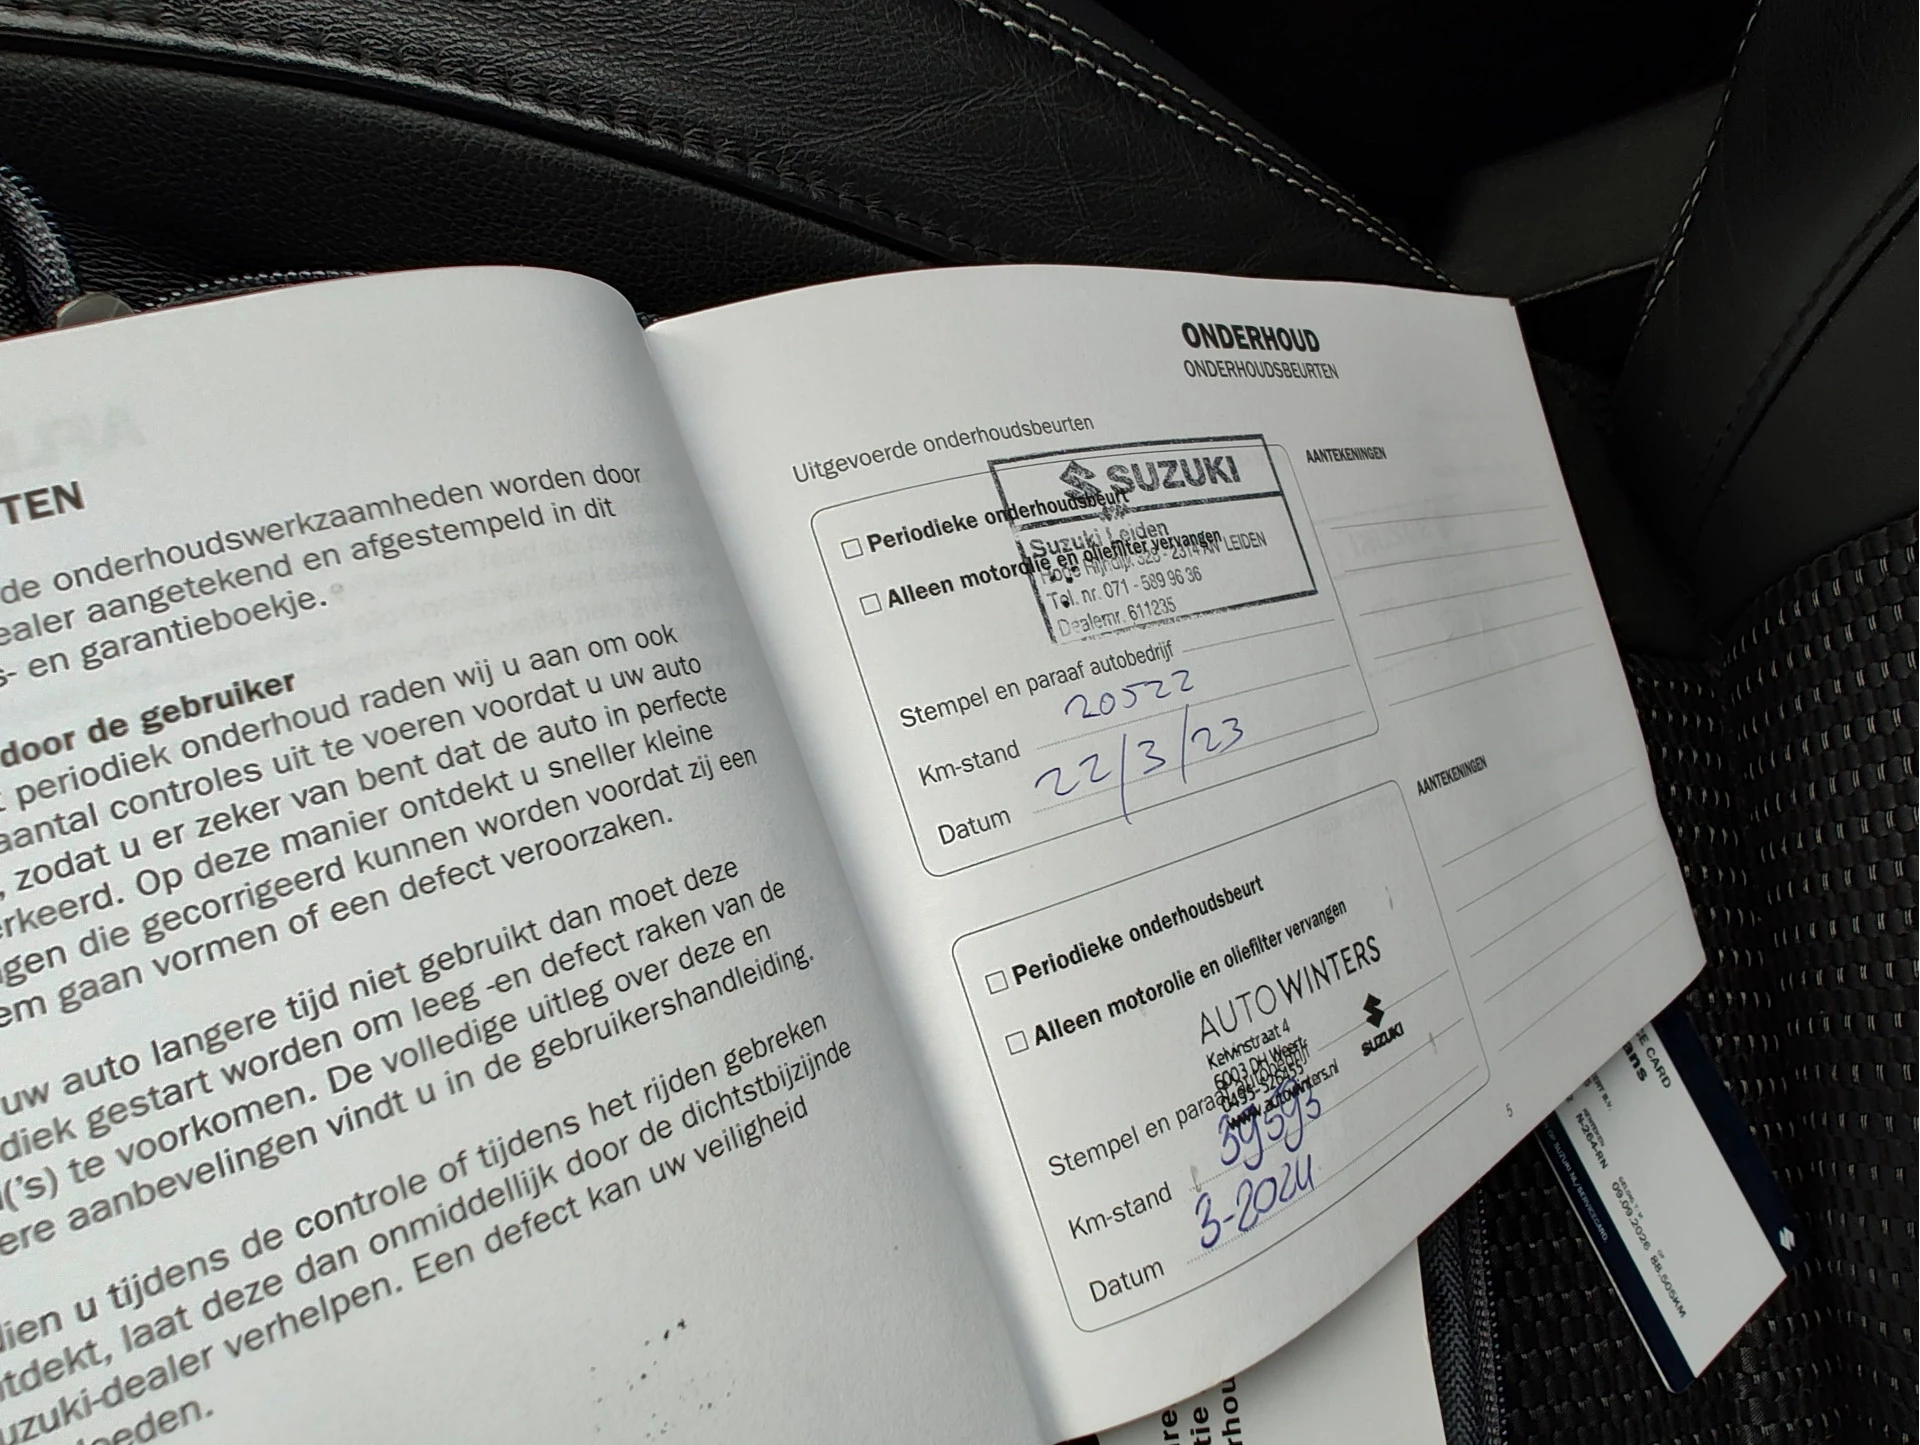 TEN
de onderhoudswerkzaamheden worden door
ealer aangetekend en afgestempeld in dit
s- en garantieboekje.
door de gebruiker
periodiek onderhoud raden wij u aan om ook
aantal controles uit te voeren voordat u uw auto
, zodat u er zeker van bent dat de auto in perfecte
erkeerd. Op deze manier ontdekt u sneller kleine
ngen die gecorrigeerd kunnen worden voordat zij een
em gaan vormen of een defect veroorzaken.
uw auto langere tijd niet gebruikt dan moet deze
diek gestart worden om leeg -en defect raken van de
('s) te voorkomen. De volledige uitleg over deze en
ere aanbevelingen vindt u in de gebruikershandleiding.
dien u tijdens de controle of tijdens het rijden gebreken
ntdekt, laat deze dan onmiddellijk door de dichtstbijzijnde
uzuki-dealer verhelpen. Een defect kan uw veiligheid
loeden.
ONDERHOUD
ONDERHOUDSBEURTEN
Uitgevoerde onderhoudsbeurten
AANTEKENINGEN
SUZUKI
Periodieke onderhoudsbeurt
Suzuki Leiden
Alleen motorolie en oliefilter vervangen
Hoge Rijndijk 329 - 2314 AN LEIDEN
Tel. nr. 071 - 589 96 36
Dealernr. 611235
Stempel en paraaf autobedrijf
Km-stand 20522
Datum 22/3/23
AANTEKENINGEN
Periodieke onderhoudsbeurt
Alleen motorolie en oliefilter vervangen
AUTOWINTERS
SUZUKI
Kelvinstraat 4
6003 DH Weert
0495-526455
www.autowinters.nl
Stempel en paraaf autobedrijf
Km-stand 39593
Datum 3-2024
5
CE CARD
N-264-RN
09.09.2026
88.505KM